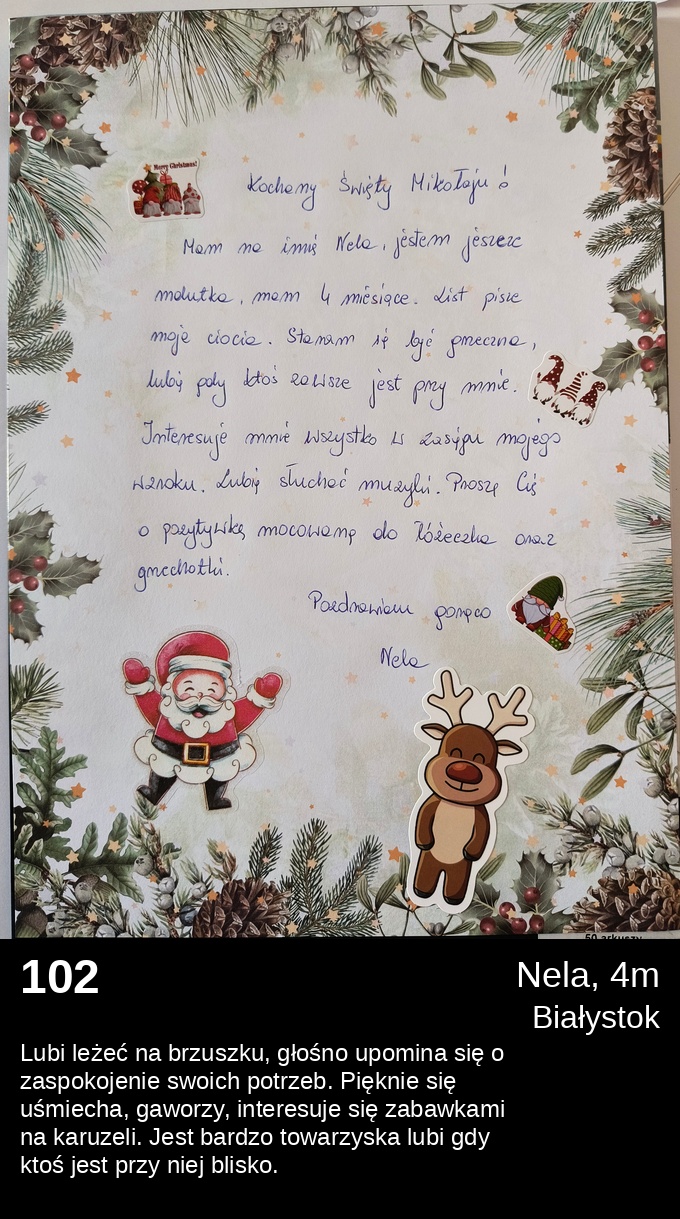 Merry Christmas!
Kochany Święty Mikołaju!
Mam na imię Nela, jestem jeszcze
malutka, mam 4 miesiące. List pisze
moja ciocia. Staram się być grzeczna,
lubię gdy ktoś zawsze jest przy mnie.
Interesuje mnie wszystko w zasięgu mojego
wzroku. Lubię słuchać muzyki. Proszę Cię
o pozytywkę mocowaną do łóżeczka oraz
grzechotki.
Pozdrawiam gorąco
Nela
50 arkuszy
102
Nela, 4m
Białystok
Lubi leżeć na brzuszku, głośno upomina się o
zaspokojenie swoich potrzeb. Pięknie się
uśmiecha, gaworzy, interesuje się zabawkami
na karuzeli. Jest bardzo towarzyska lubi gdy
ktoś jest przy niej blisko.